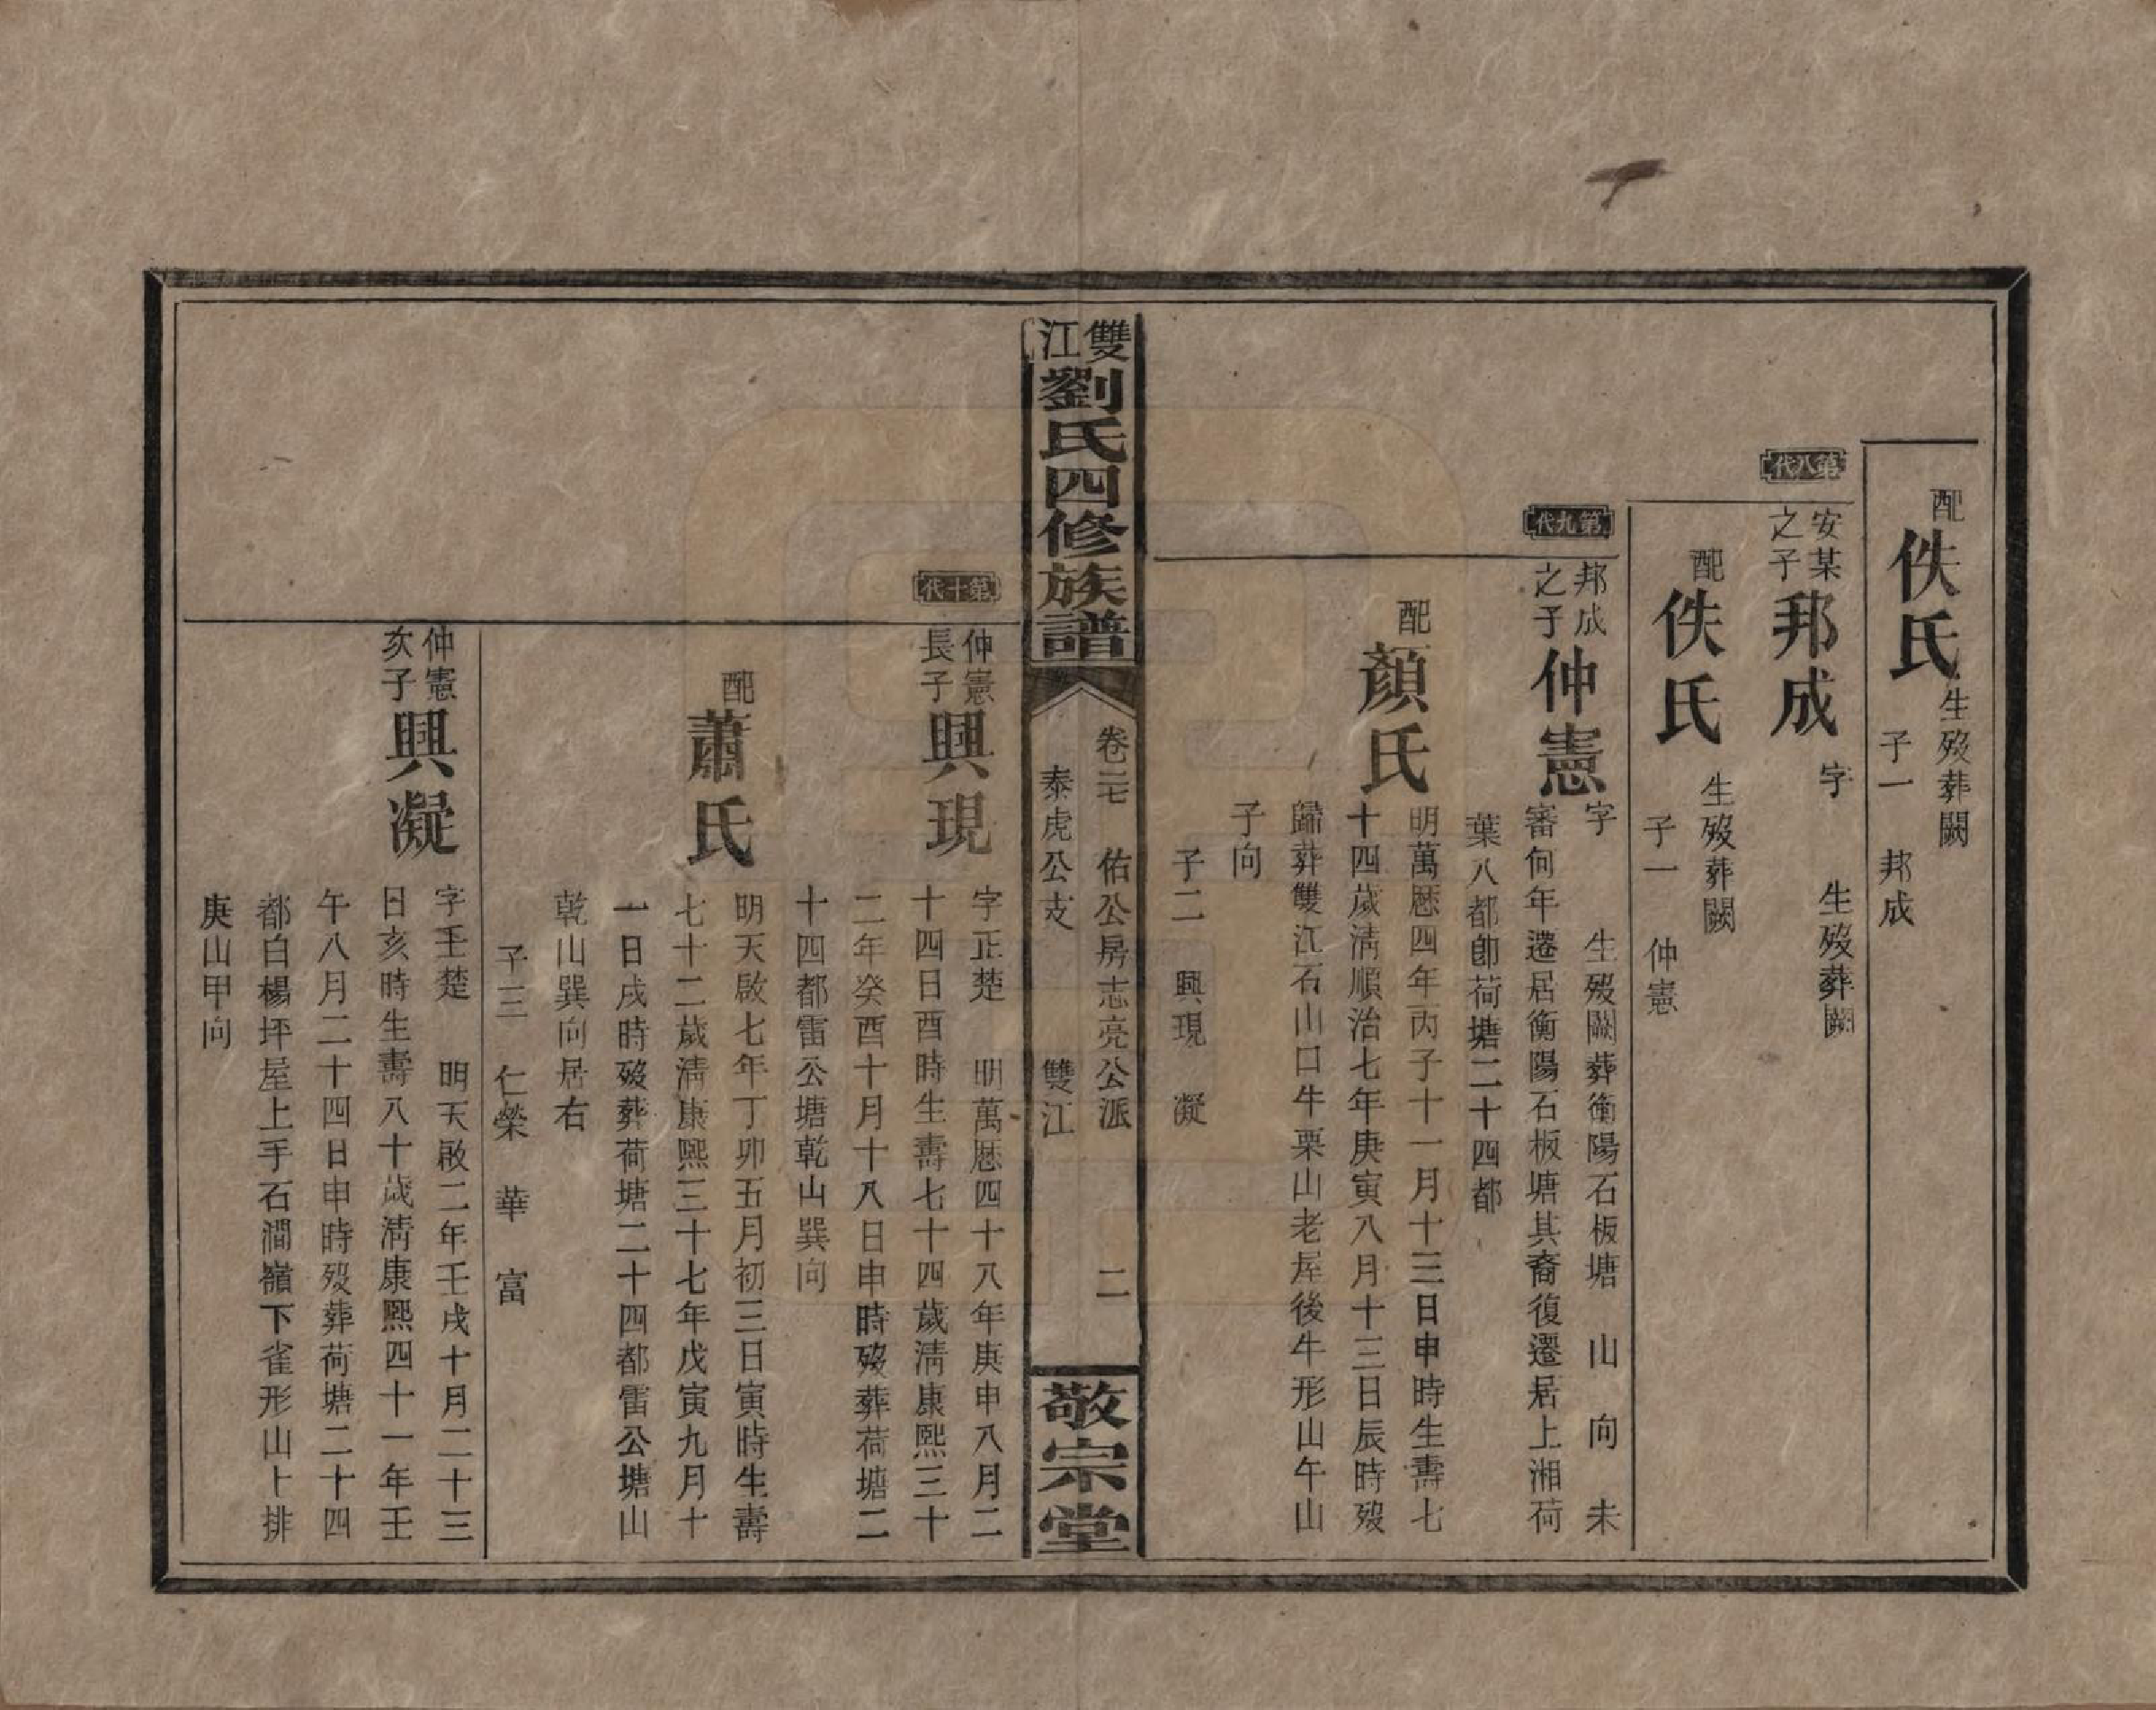 配佚氏生歿葬闕
子一　邦成
第八代
安某之子邦成字　生歿葬闕
配佚氏生歿葬闕
子一　仲憲
第九代
邦成之子仲憲字　生歿闕葬衡陽石板塘　山　向　未
審何年遷居衡陽石板塘其裔復遷居上湘荷
葉八都卽荷塘二十四都
配顏氏明萬厯四年丙子十一月十三日申時生壽七
十四歲淸順治七年庚寅八月十三日辰時歿
歸葬雙江石山口牛栗山老屋後牛形山午山
子向
子二　興現　凝
雙江劉氏四修族譜
卷二　佑公房志亮公派　二
泰虎公支　雙江
敬宗堂
第十代
仲憲長子興現字正楚　明萬厯四十八年庚申八月二
十四日酉時生壽七十四歲淸康熙三十
二年癸酉十月十八日申時歿葬荷塘二
十四都雷公塘乾山巽向
配蕭氏明天啟七年丁卯五月初三日寅時生壽
七十二歲淸康熙三十七年戊寅九月十
一日戌時歿葬荷塘二十四都雷公塘山
乾山巽向居右
子三　仁榮　華　富
仲憲次子興凝字玉楚　明天啟二年壬戌十月二十三
日亥時生壽八十歲淸康熙四十一年壬
午八月二十四日申時歿葬荷塘二十四
都白楊坪屋上手石澗嶺下雀形山上排
庚山甲向